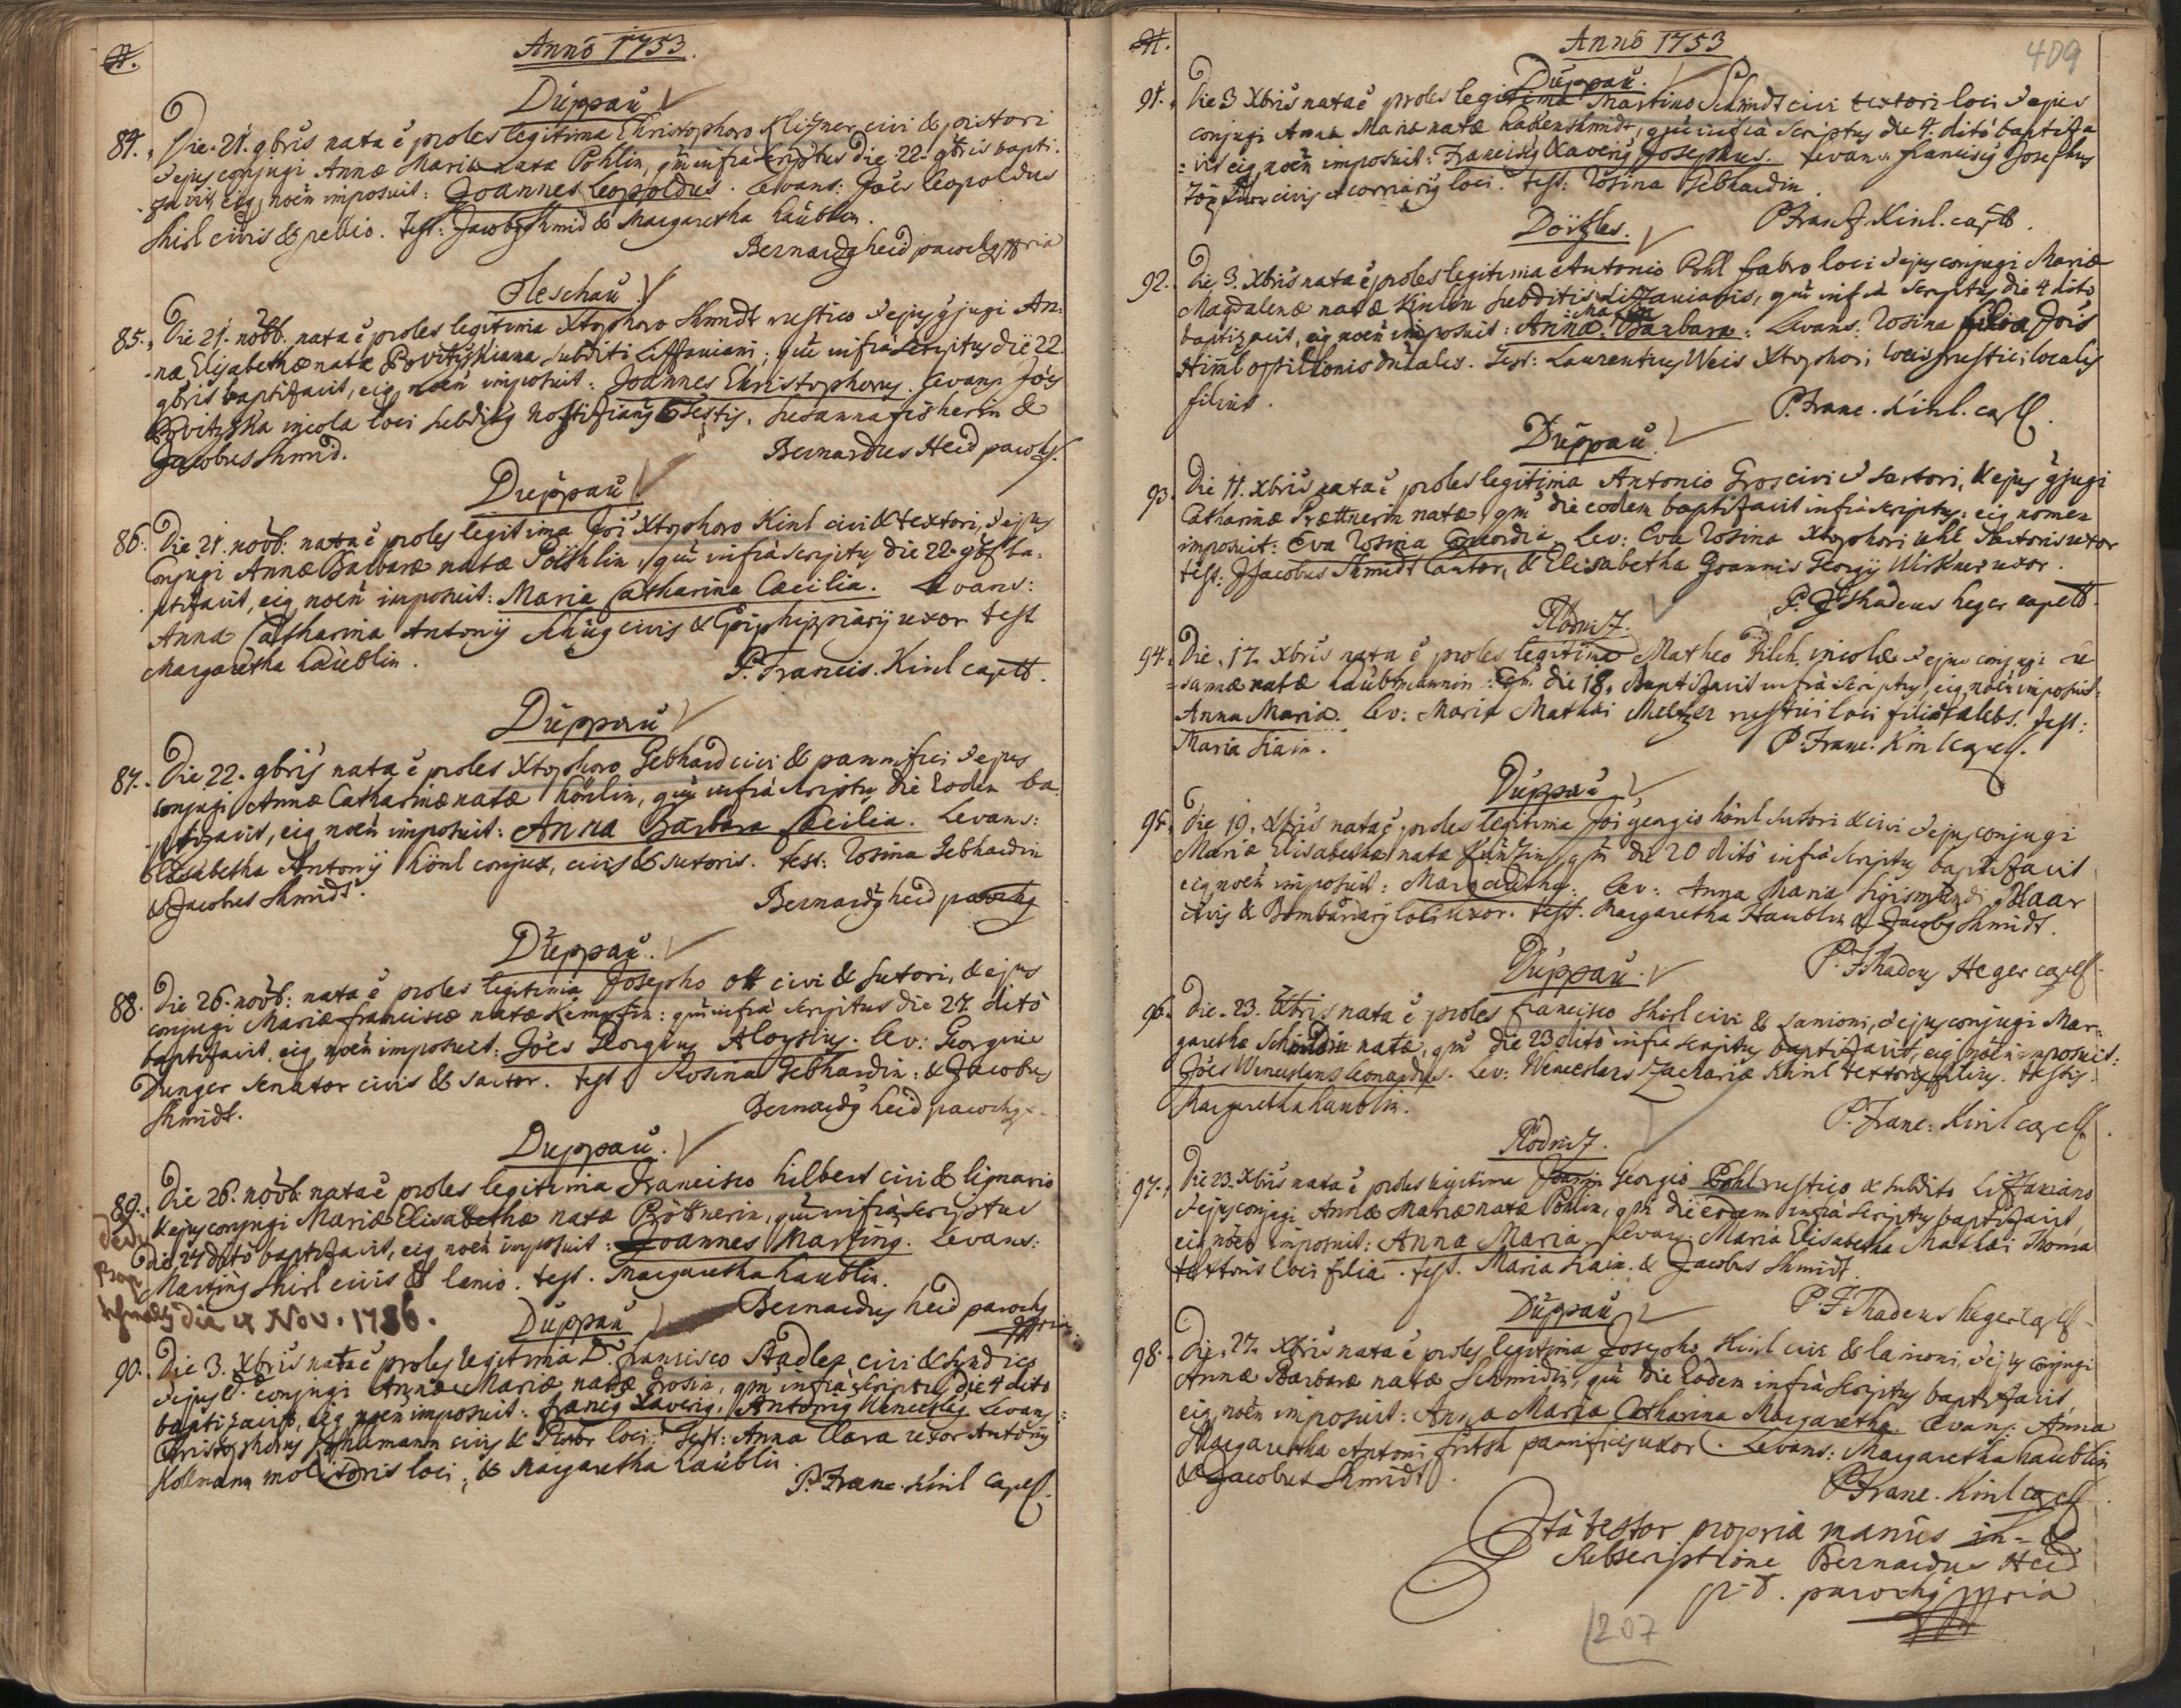 N.
Anno 1753.
Duppau
84. Die 21. 9bris nata ē proles legitima Christophoro Klizner civi & pistori
& ejus conjugi Annæ Mariæ nata Pohlin, qm̄ infrà scriptus Die 22. 9bris bapti-
zavit, eiq noēn imposuit: Joannes Leopoldus. Levans: Joēs Leopoldus
Shirl civis & pellio. Test: Jacobq Shmid & Margaretha Laüblin.
Bernardq Heid parochq mpria
Oleschau
85. Die 21. novb. nata ē proles legitima Xtophoro Shmidt rustico & ejus gjugi An-
næ Elisabethæ natæ subditi Liffaviani; qm̄ infrà scriptus die 22.
9bris baptizavit, eiq noēn imposuit: Joannes Christophorus. Levans Joēs
incola loci subditq. Testis. Susanna Fisherin &
Jacobus Shmid.
Bernardus Heid parochq.
Duppau
86. Die 21. novb: nata ē proles legitima Joī Xtophoro Kinl civi & textori, & ejus
Conjugi Annæ Barbaræ natæ Pöshlin, qm̄ infrà scriptus die 22. 9br ba-
ptizavit, eiq noēn imposuit: Maria Catharina Cæcilia. Levans:
Anna Catharina Antonij Schüg civis & Ephippiarij uxor test
Margaretha Laüblin.
P. Francis. Kinl capell.
Duppau
87. Die 22. 9bris nata ē proles Xtophoro Gebhard civi & pannifici & ejus
conjugi Annæ Catharinæ natæ Hönlin, qm̄ infrà scriptus die eodem ba-
ptizavit, eiq noēn imposuit: Anna Barbara Cæcilia. Levans:
Elisabetha Antonij Hönl conjux, civis & sutoris. test: Rosina Gebhardin
& Jacobus Shmidt.
Bernardq Heid parochq
Duppau.
88. Die 26. novb: nata ē proles legitima Josepho Ott civi & sutori, & ejus
conjugi Mariæ Franciscæ natæ Kempfin: qm̄ infrà scriptus die 27. ditò
baptizavit, eiq noēn imposuit: Joēs Georgius Aloysius. Lev: Georgius
Dunger Senator civis & sartor. test. Rosina Gebhardin: & Jacobus
Shmidt.
Bernardq Heid parochq
Duppau.
89. Die 26. novb. nata ē proles legitima Francisco Hilbert civi & lignario
& ejus conjugi Mariæ Elisabethæ natæ Pröttnerin, qm̄ infrà scriptus
die 27 ditò baptizavit, eiq noēn imposuit: Joannes Martinq. Levans:
Martinq Shirl civis & lanio. test. Margaretha Laublin.
die 4 Nov. 1786.
Bernardus Heid parochq mpria
Duppau
90. Die 3. Xbris nata ē proles legitima D. Francisco Stadler civi & syndico
& ejus D. Conjugi Annæ Mariæ natæ Grosin, qm̄ infrà scriptus die 4 dito
baptizavit, eiq noēn imposuit: Francq Xaverq. Antoniq Wenceslq. Levans
Christophorus civis & loci. Test: Anna Clara uxor Antonij
Kollmann molitoris loci, & Margaretha Laublin.
P. Franc. Kinl Capell.
N.
Anno 1753
409
Duppau.
91. Die 3 Xbris nata ē proles legitima Martino Schmidt civi textori loci & ejus
conjugi Annæ Mariæ natæ Habenshmidt, qm̄ infrà scriptus die 4. ditò baptiza-
vit eiq noēn imposuit: Franciscq Xaverq Josephus. Levans Franciscq Josephus
civis et corriarij loci. test: Rosina Gebhardin.
P. Franz. Kinl. capell.
Dörfles.
92. Die 3. Xbris nata ē proles legitima Antonio Pohl fabro loci & ejus conjugi Mariæ
Magdalenæ natæ Kinlin subditis Liffavianis, qm̄ infrà scriptus die 4 ditò
baptizavit, eiq noēn imposuit: Anna Maria Barbara. Levans. Rosina filia Joīs
Himl opilionis. Test: Laurentius Weis Xtophori, rustici localis
filius.
P. Franc. Kinl. capell.
Duppau.
93. Die 11. Xbris nata ē proles legitima Antonio Gros civi & sartori, & ejus gjugi
Catharinæ Prættnerin natæ, qm̄ die eodem baptizavit infrà scriptus: eiq nomen
imposuit: Eva Rosina Concordia. Lev: Eva Rosina Xtophori Uhl Sutoris uxor
test: Jacobus Shmidt Cantor, & Elisabetha Joannis Georgij Wirkner uxor.
P. J. Thadeus Heger capell.
Rödniz.
94. Die 17. Xbris nata ē proles legitima Matheo Pilch incolæ & ejus conjugi Su-
sannæ natæ Laubmannin: Qm̄ die 18. Baptizavit infrà scriptus, eiq noēn imposuit:
Anna Maria. Lev: Maria Mathæi Meltzer rustici loci filia cælebs. Test:
Maria Hain.
P. Franc. Kinl capell.
Duppau
95. Die 19. Xbris nata ē proles legitima Joī Georgio Hönl sutori & civi & ejus conjugi
Mariæ Elisabethæ natæ Küntzin, qm̄ die 20 ditò infrà scriptus baptizavit
eiq noēn imposuit: Margaretha. Lev: Anna Maria Sigismundi Haar
civis & Bombardarij loci uxor. test. Margaretha Haublin & Jacobq Shmidt.
P. J. Thadeus Heger capell.
Duppau.
96. Die 23. Xbris nata ē proles Francisco Shirl civi & lanioni, & ejus conjugi Mar-
garetha Schmidin natæ, qm̄ die 23 ditò infrà scriptus baptizavit, eiq noēn imposuit:
Joēs Wenceslaus Leonardus. Lev: Wenceslaus Zachariæ Kinl textoris filius. testis
Margaretha Haublin.
P. Franc: Kinl capell.
Rödniz.
97. Die 23. Xbris nata ē proles legitima Joanni Georgio Pohl rustico & subdito Liffaviano
& ejus conjugi Annæ Mariæ natæ Pohlin, qm̄ die eodem infrà scriptus baptizavit,
eiq noēn imposuit: Anna Maria. Levans: Maria Elisabetha Mathæi Thoma
textoris loci filia. test. Maria Hain. & Jacobus Shmidt.
P. J. Thadeus Heger Capell.
Duppau
98. Die 27. Xbris nata ē proles legitima Josepho Kinl civi & lanioni, & ejus conjugi
Annæ Barbaræ natæ Schmidin, qm̄ die eodem infrà scriptus baptizavit
eiq noēn imposuit: Anna Maria Catharina Margaretha. Levans: Anna
Margaretha Antoni Fritsh pannificis uxor. Levans: Margaretha Haublin
& Jacobus Shmidt.
P. Franc. Kinl capell.
Ità testor propria manûs
Subscriptione Bernardus Heid
p. t. parochq mpria
207